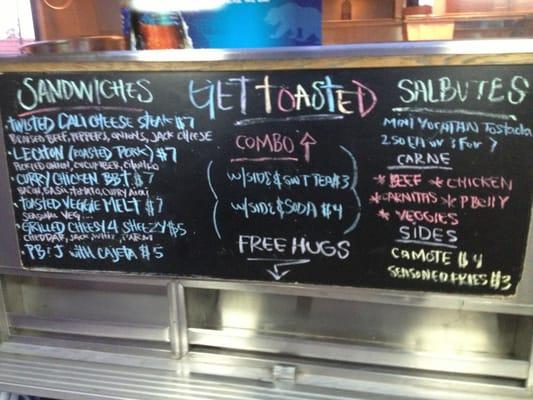 SANDWICHES
• TWISTED CALI CHEESE STEAK $7
BRAISED BEEF, PEPPERS, ONIONS, JACK CHEESE
• LECHON (ROASTED PORK) $7
PICKLED ONION, CUCUMBER, CILANTRO
• CURRY CHICKEN BBT $7
BACON, BASIL, TOMATO, CURRY
• TOASTED VEGGIE MELT $7
SEASONAL VEG...
• GRILLED CHEESY 4 SHEEZY $5
CHEDDAR, JACK, PARM
• PB & J with CAJETA $5
GET TOASTED
COMBO
W/SIDE & TEA $3
W/SIDE & SODA $4
FREE HUGS
SALBUTES
MINI YUCATAN Tostada
2.50 EA or 3 for 7
CARNE
* BEEF * CHICKEN
* CARNITAS * P BELLY
* VEGGIES
SIDES
CAMOTE $4
SEASONED FRIES $3